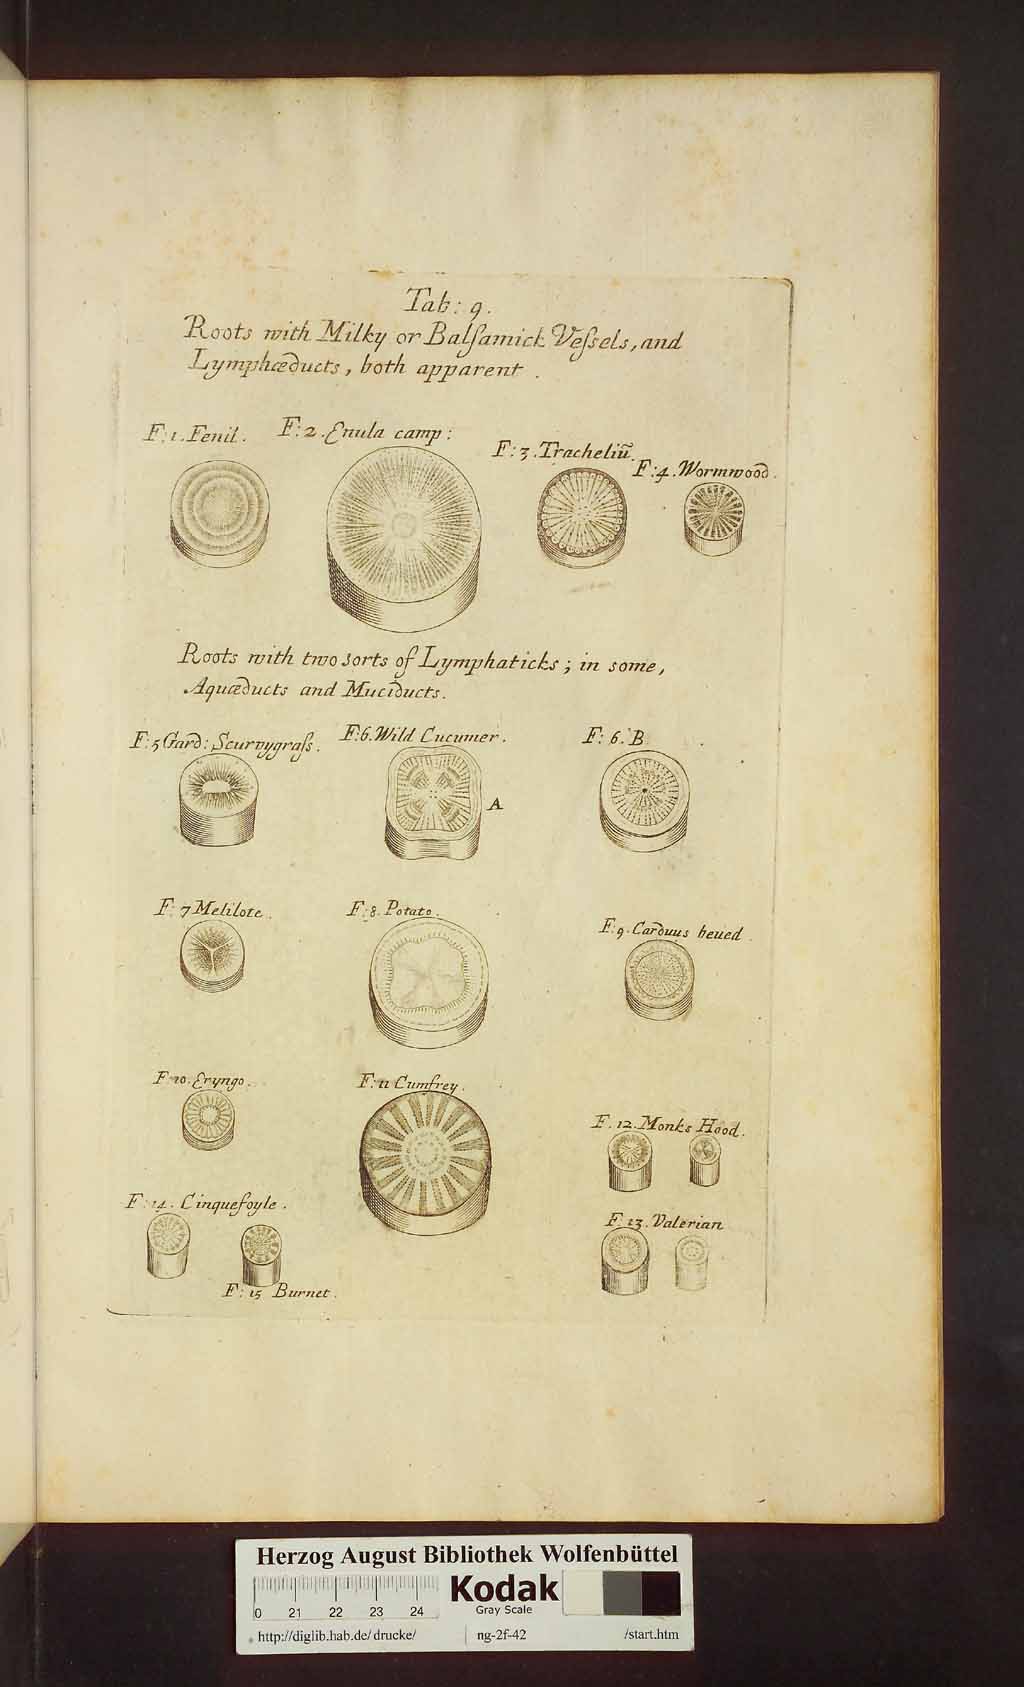 Tab: 9.
Roots with Milky or Balſamick Veſsels, and
Lymphæducts, both apparent.
F: 1. Fenil.
F: 2. Enula camp:
F: 3. Tracheliũ.
F: 4. Wormwood.
Roots with two sorts of Lymphaticks; in some,
Aquæducts and Muciducts.
F: 5 Gard: Scurvygraſs.
F: 6. Wild Cucumer.
A
F: 6. B
F: 7 Melilote.
F: 8. Potato.
F: 9. Carduus beued.
F: 10. Eryngo.
F: 11 Cumfrey.
F. 12. Monks Hood.
F: 14. Cinquefoyle.
F: 15 Burnet.
F. 13. Valerian
Herzog August Bibliothek Wolfenbüttel
0 21 22 23 24
Kodak
Gray Scale
http://diglib.hab.de/drucke/ ng-2f-42 /start.htm